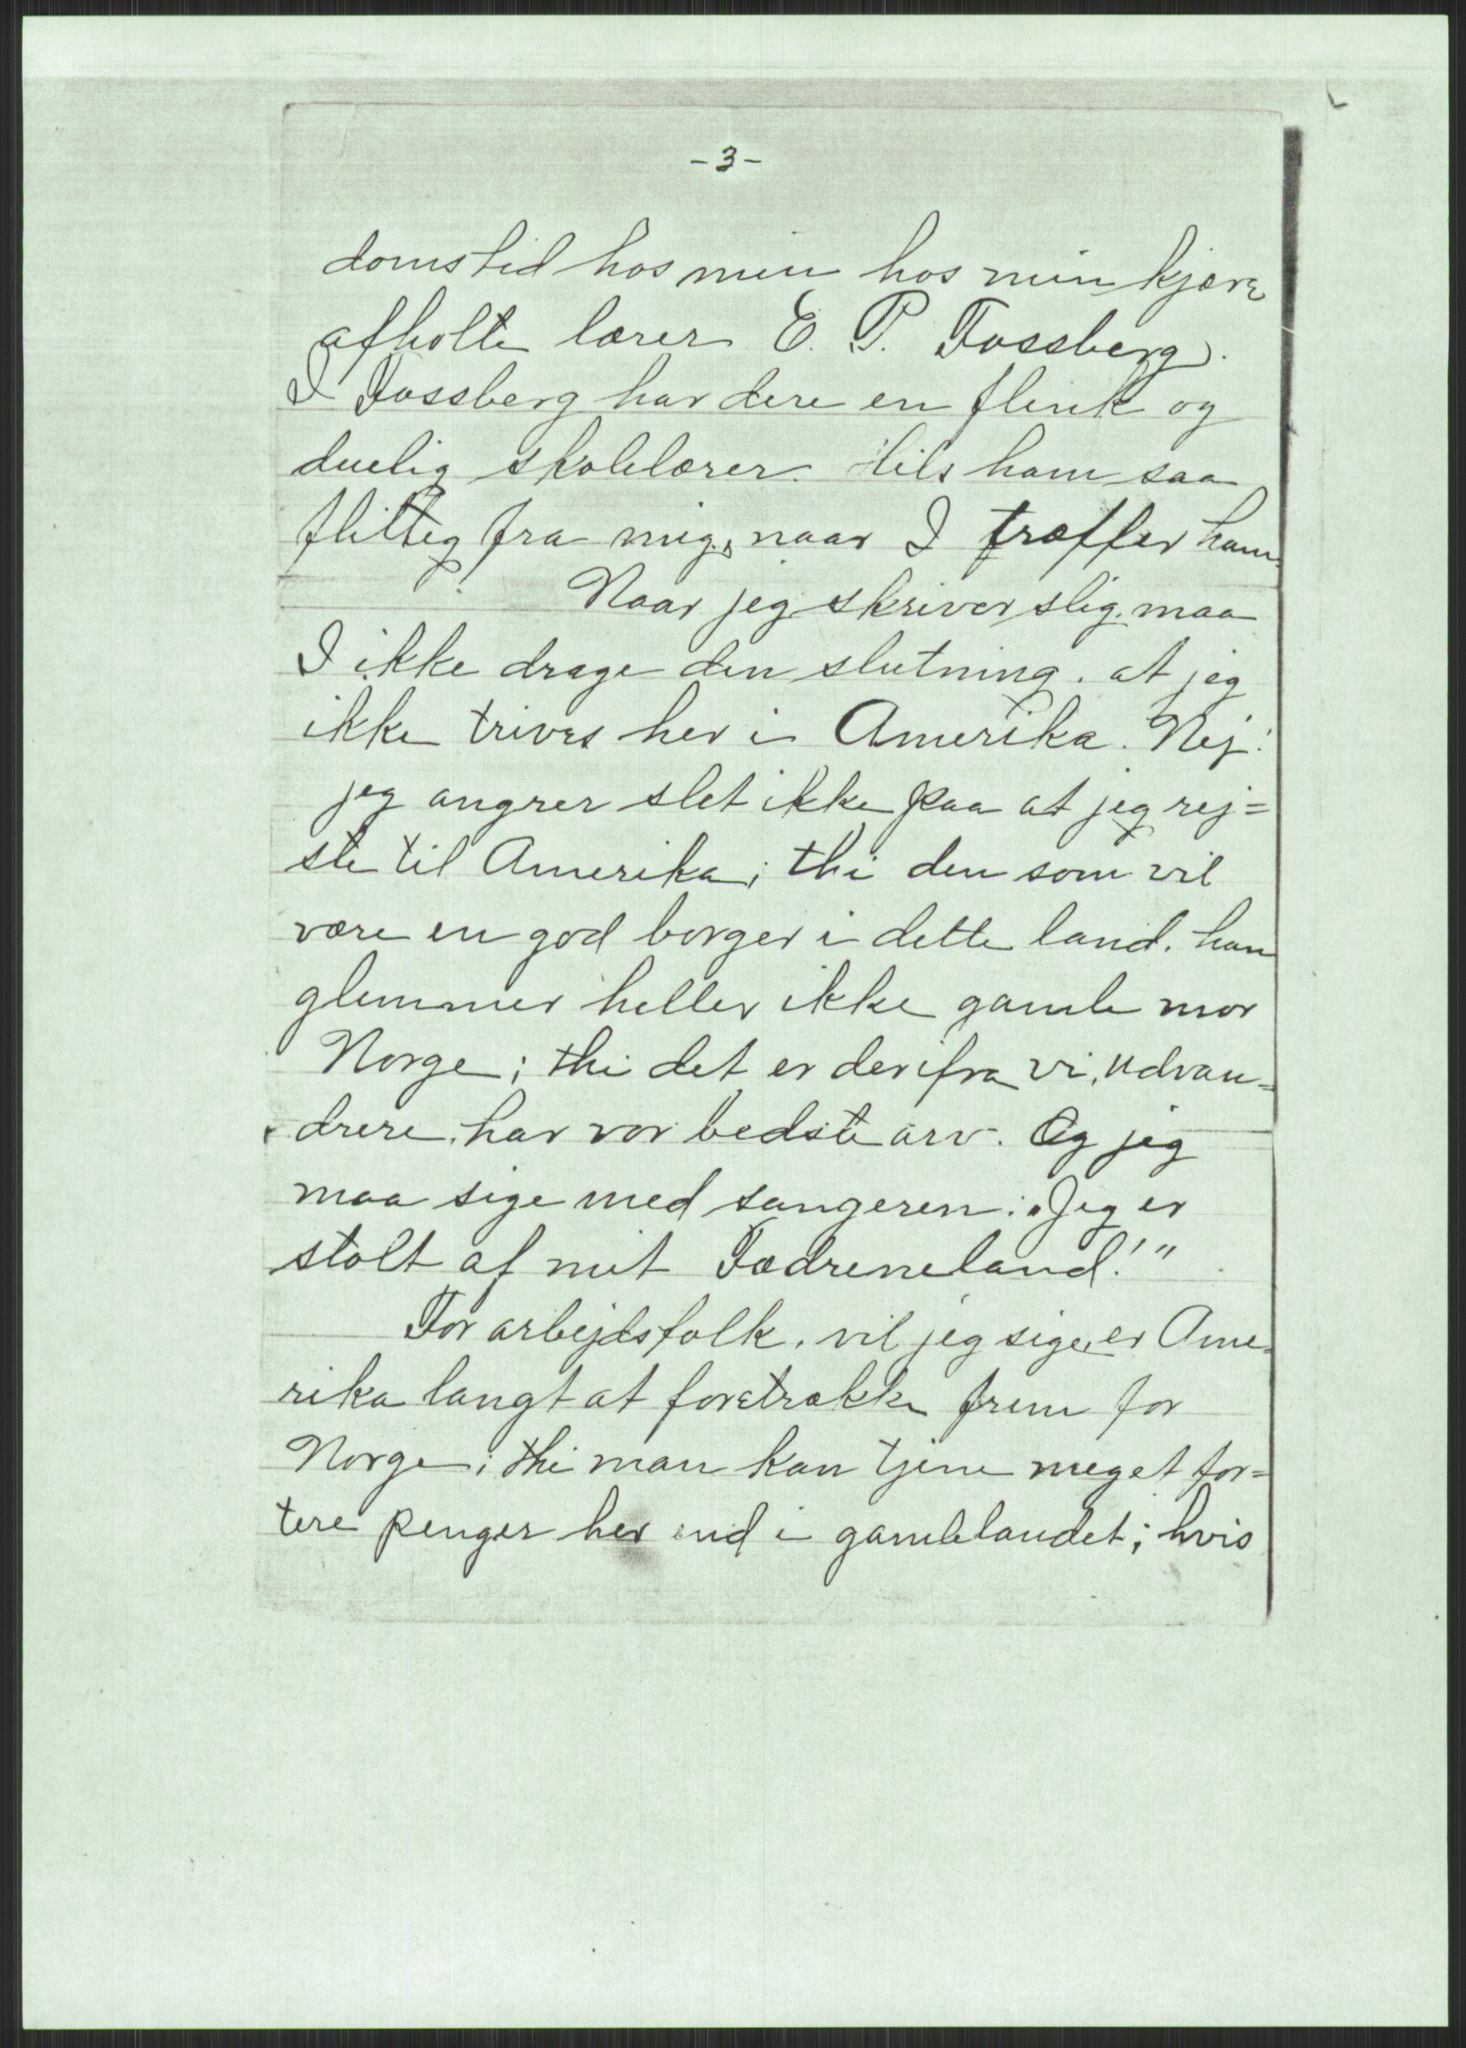 - 3 -
domstid hos min hos min kjære
afholte lærer E. P. Fossberg.
I Fossberg har dere en flink og
duelig skolelærer. Hils ham saa
flittig fra mig, naar I træffer ham.
Naar jeg skriver slig, maa
I ikke drage den slutning, at jeg
ikke trives her i Amerika. Nej!
jeg angrer slet ikke paa at jeg rej=
ste til Amerika; thi den som vil
være en god borger i dette land, han
glemmer heller ikke gamle mor
Norge; thi det er derifra vi, udvan=
drere, har vor bedste arv. Og jeg
maa sige med sangeren: „Jeg er
stolt af mit Fædreneland!"
For arbejdsfolk, vil jeg sige, er Ame=
rika langt at foretrække frem for
Norge; thi man kan tjene meget for=
tere penger her end i gamlelandet; hvis